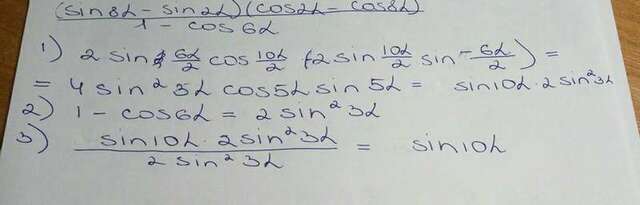 (sin8α - sin2α)(cos2α - cos8α)
1 - cos6α
1) 2 sin 6α/2 cos 10α/2 (2 sin 10α/2 sin -6α/2) =
= 4 sin² 3α cos5α sin 5α = sin10α · 2 sin² 3α
2) 1 - cos6α = 2 sin² 3α
3) sin10α · 2 sin² 3α / 2 sin² 3α = sin10α